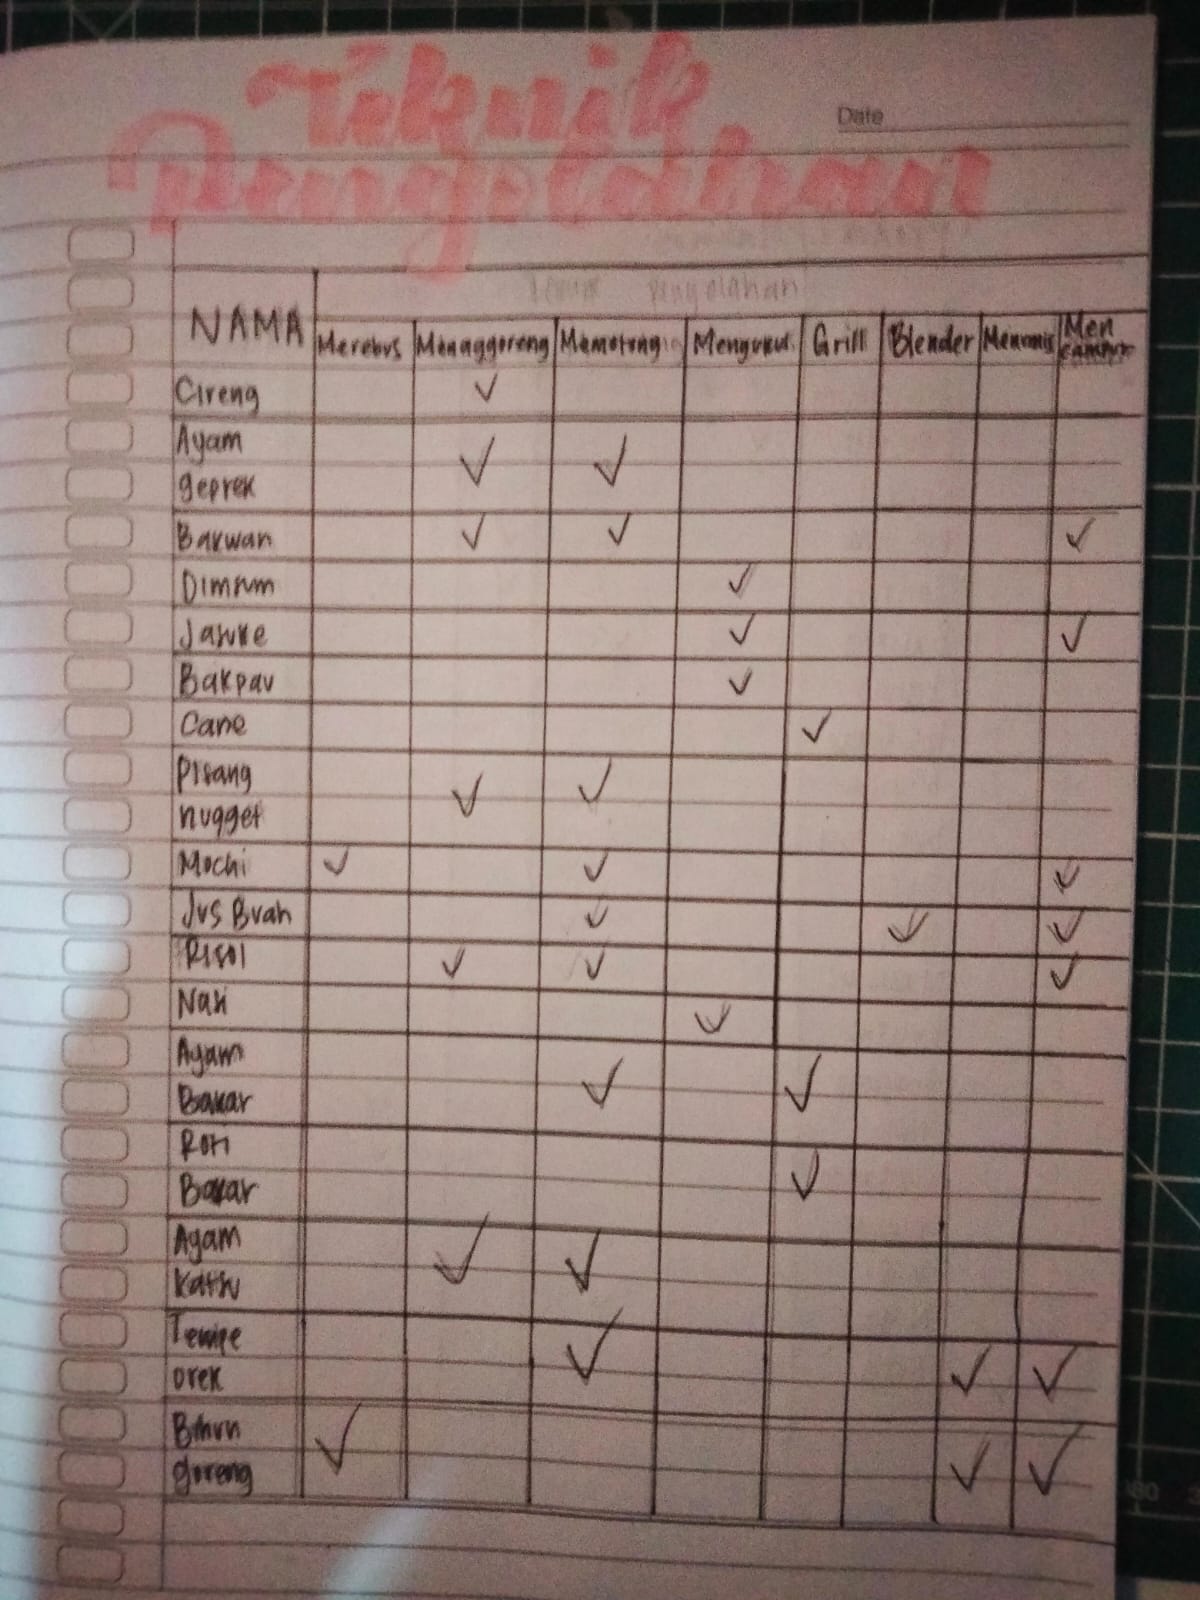 Teknik
Pengolahan
Date
teknik pengolahan
NAMA Merebus Menaggoreng Memotong Mengukus Grill Blender Menumis Men campur
Cireng ✓
Ayam geprek ✓ ✓
Bakwan ✓ ✓ ✓
Dimsum ✓
Jawke ✓ ✓
Bakpau ✓
Cane ✓
Pisang nugget ✓ ✓
Mochi ✓ ✓ ✓
Jus Buah ✓ ✓ ✓
Risol ✓ ✓ ✓
Nasi ✓
Ayam Bakar ✓ ✓
Roti Bakar ✓
Ayam Katsu ✓ ✓
Tempe orek ✓ ✓ ✓
Bihun goreng ✓ ✓ ✓